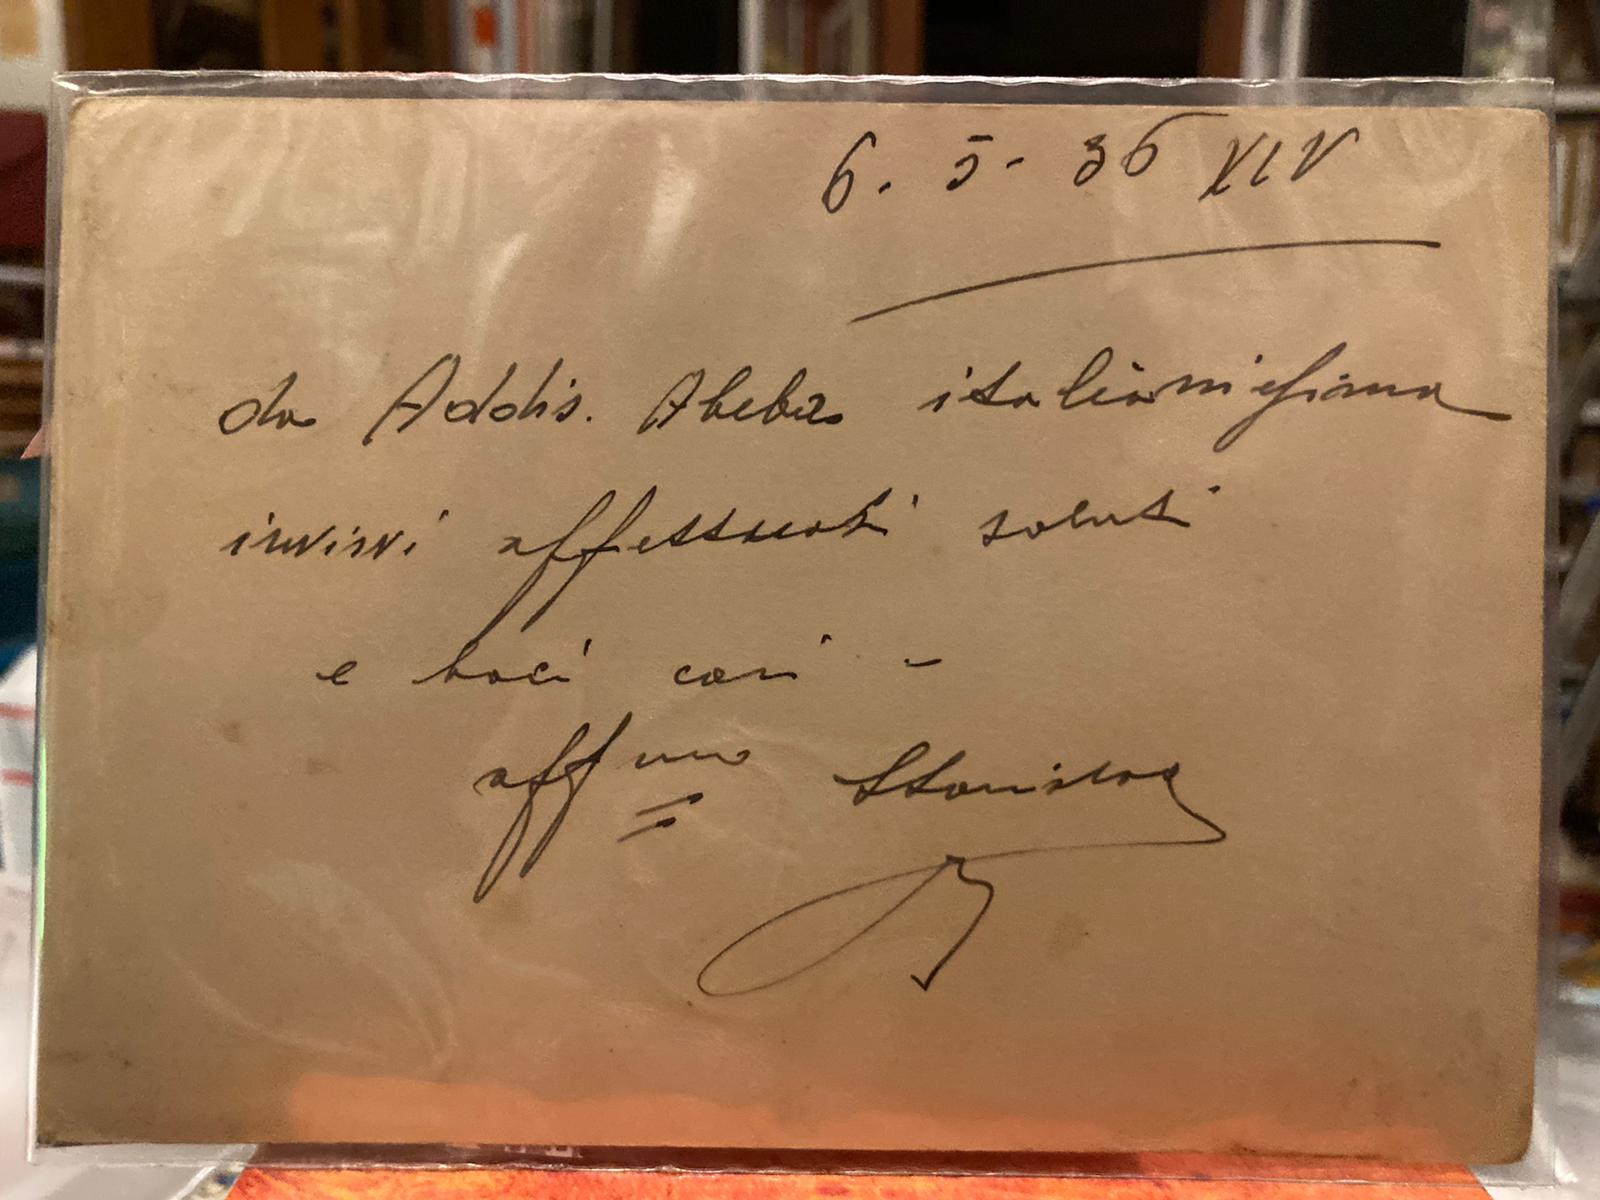 6. 5. 36 XIV
da Addis. Abeba italianissima
inviovi affettuosi saluti
e baci cari -
aff mo Stanislao